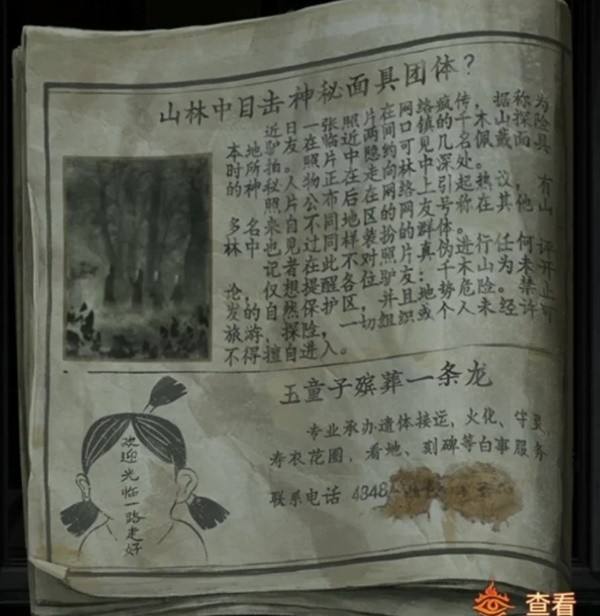 山林中目击神秘面具团体？
近日一张照片在网络疯传，据称为
本地驴友在临近两间口镇的千木山探险
时所拍。照片中隐约可见几名佩戴面具
的神秘人物正在走向林中深处。
照片公布后在网络上引起热议，有
多名来自不同地区的网友称在其他山
林中也见过同样装扮的群体。
记者在此不对照片真伪进行任何评
论，仅想提醒各位驴友：千木山为未开
发的自然保护区，并且地势危险。禁止
旅游，探险，一切组织或个人未经许可
不得擅自进入。
五童子殡葬一条龙
专业承办遗体接运，火化、守灵、
寿衣花圈，看地、刻碑等白事服务
联系电话 4848
欢迎光临一路走好
查看